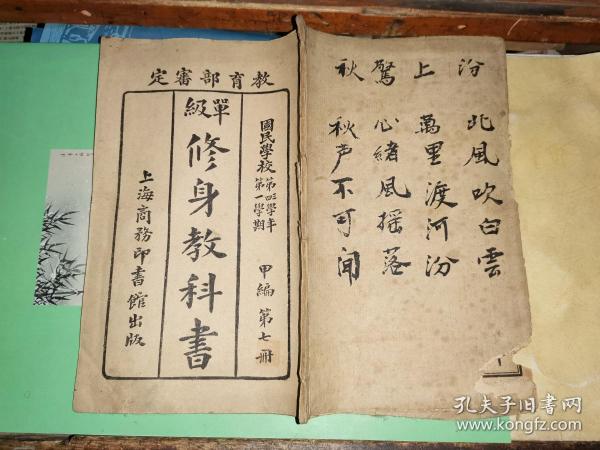 教育部審定
國民學校
第四學年
第一學期
甲編 第七冊
單級
修身教科書
上海商務印書館出版
汾上驚秋
北風吹白雲
萬里渡河汾
心緒風摇落
秋声不可聞
孔夫子旧书网
book.kongfz.com